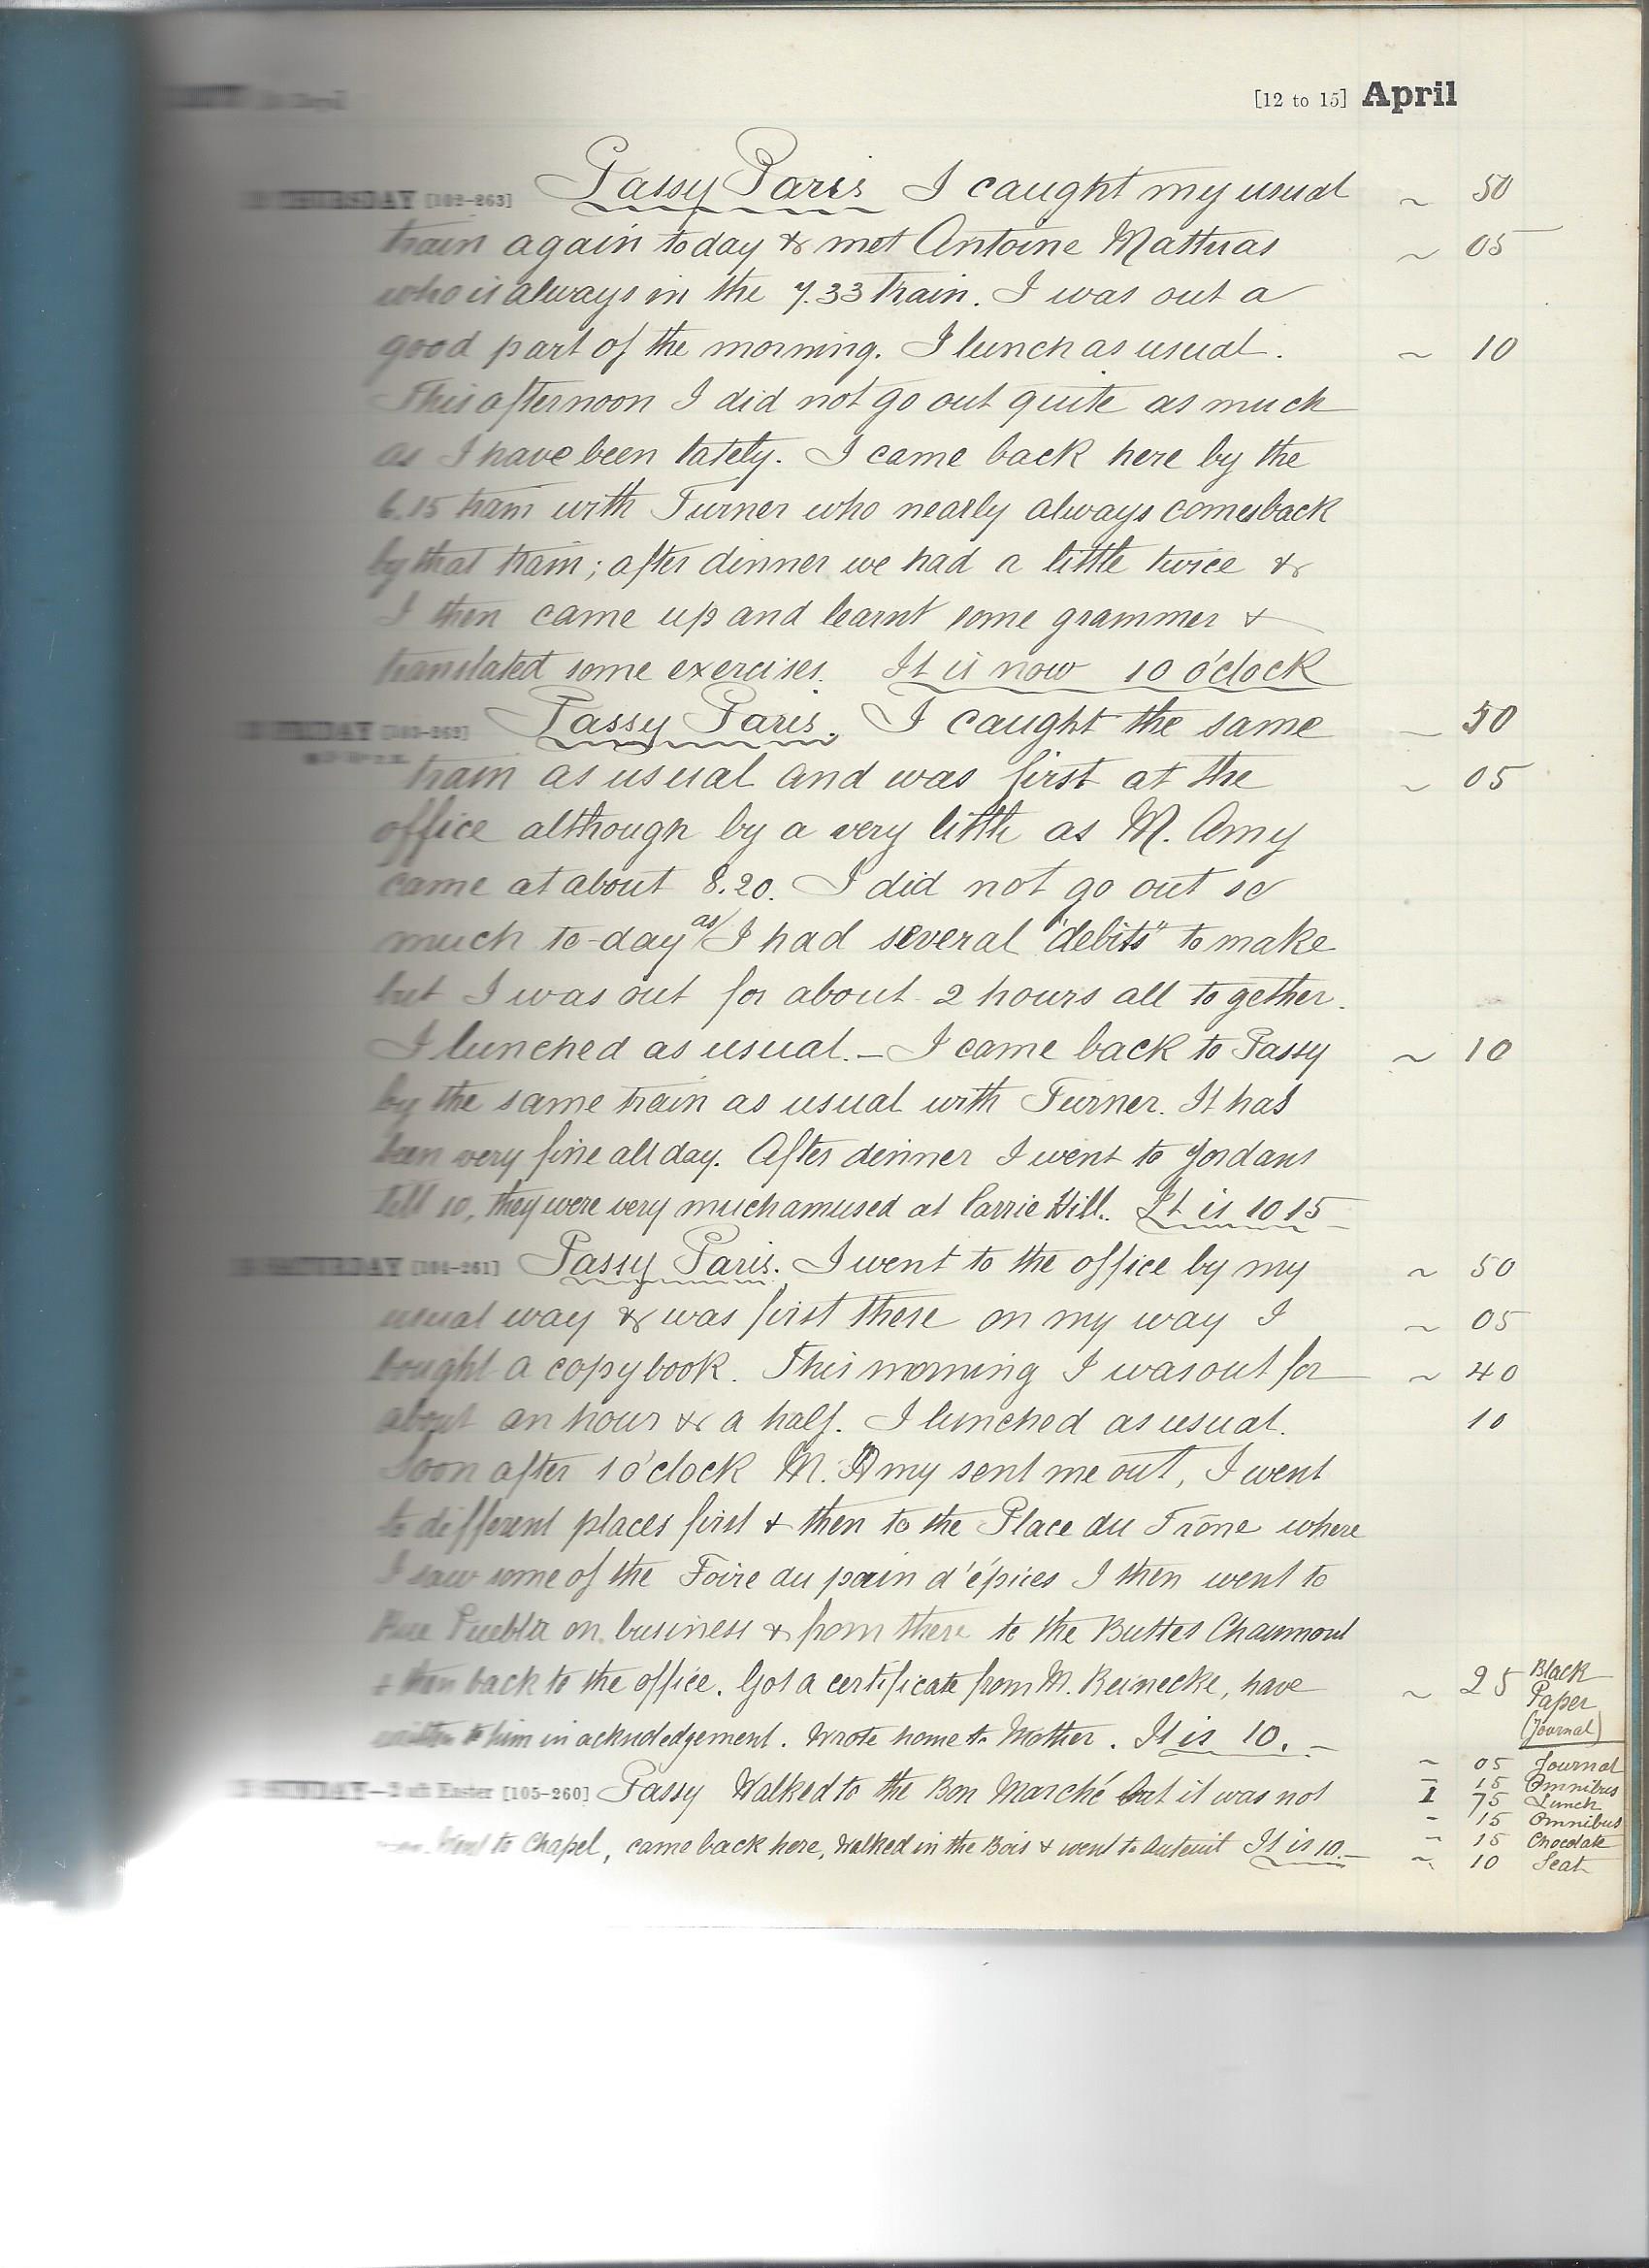 [12 to 15] April
THURSDAY [102-263] Passy Paris I caught my usual ~ 50
train again today & met Antoine Mattuas ~ 05
who is always in the 7.33 train. I was out a
good part of the morning. I lunch as usual. ~ 10
This afternoon I did not go out quite as much
as I have been lately. I came back here by the
6.15 train with Turner who nearly always comes back
by that train; after dinner we had a little twice &
I then came up and learnt some grammer &
translated some exercises. It is now 10 o'clock
FRIDAY [103-262] Passy Paris. I caught the same — 50
train as usual and was first at the ~ 05
office although by a very little as M. Amy
came at about 8.20. I did not go out so
much to-day as I had several "debits" to make
but I was out for about 2 hours all together.
I lunched as usual. — I came back to Passy ~ 10
by the same train as usual with Turner. It has
been very fine all day. After dinner I went to Jordans
till 10, they were very much amused at Carrie Hill. It is 10 15
SATURDAY [104-261] Passy Paris. I went to the office by my ~ 50
usual way & was first there on my way I ~ 05
bought a copy book. This morning I was out for ~ 40
about an hour & a half. I lunched as usual. 10
Soon after 1 o'clock M. Amy sent me out, I went
to different places first & then to the Place du Trône where
I saw some of the Foire du pain d'épices I then went to
Rue Puebla on business & from there to the Buttes Chaumont
& then back to the office. Got a certificate from M. Reinecke, have ~ 25 Black Paper (Journal)
written to him in acknoledgement. Wrote home to Mother. It is 10. —
SUNDAY—2 aft Easter [105-260] Passy Walked to the Bon Marché but it was not
Went to Chapel, came back here, walked in the Bois & went to Auteuil It is 10.—
~ 05 Journal
— 15 Omnibus
1 75 Lunch
- 15 Omnibus
~ 15 Chocolate
~ 10 Seat